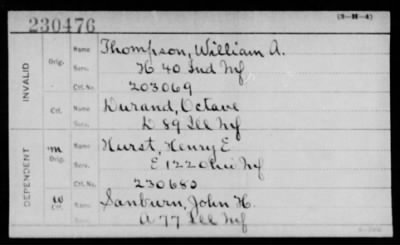 230476
(3-H-4)
INVALID
Orig.
Name Thompson, William A.
Serv. H 40 Ind Inf
Ctf. No. 203069
Ctf.
Name Durand, Octave
Serv. D 89 Ill Inf
DEPENDENT
m
Orig.
Name Hurst, Henry E
Serv. E 122 Ohio Inf
Ctf. No. 230685
W
Ctf.
Name Sanburn, John H.
Serv. A 77 Ill Inf